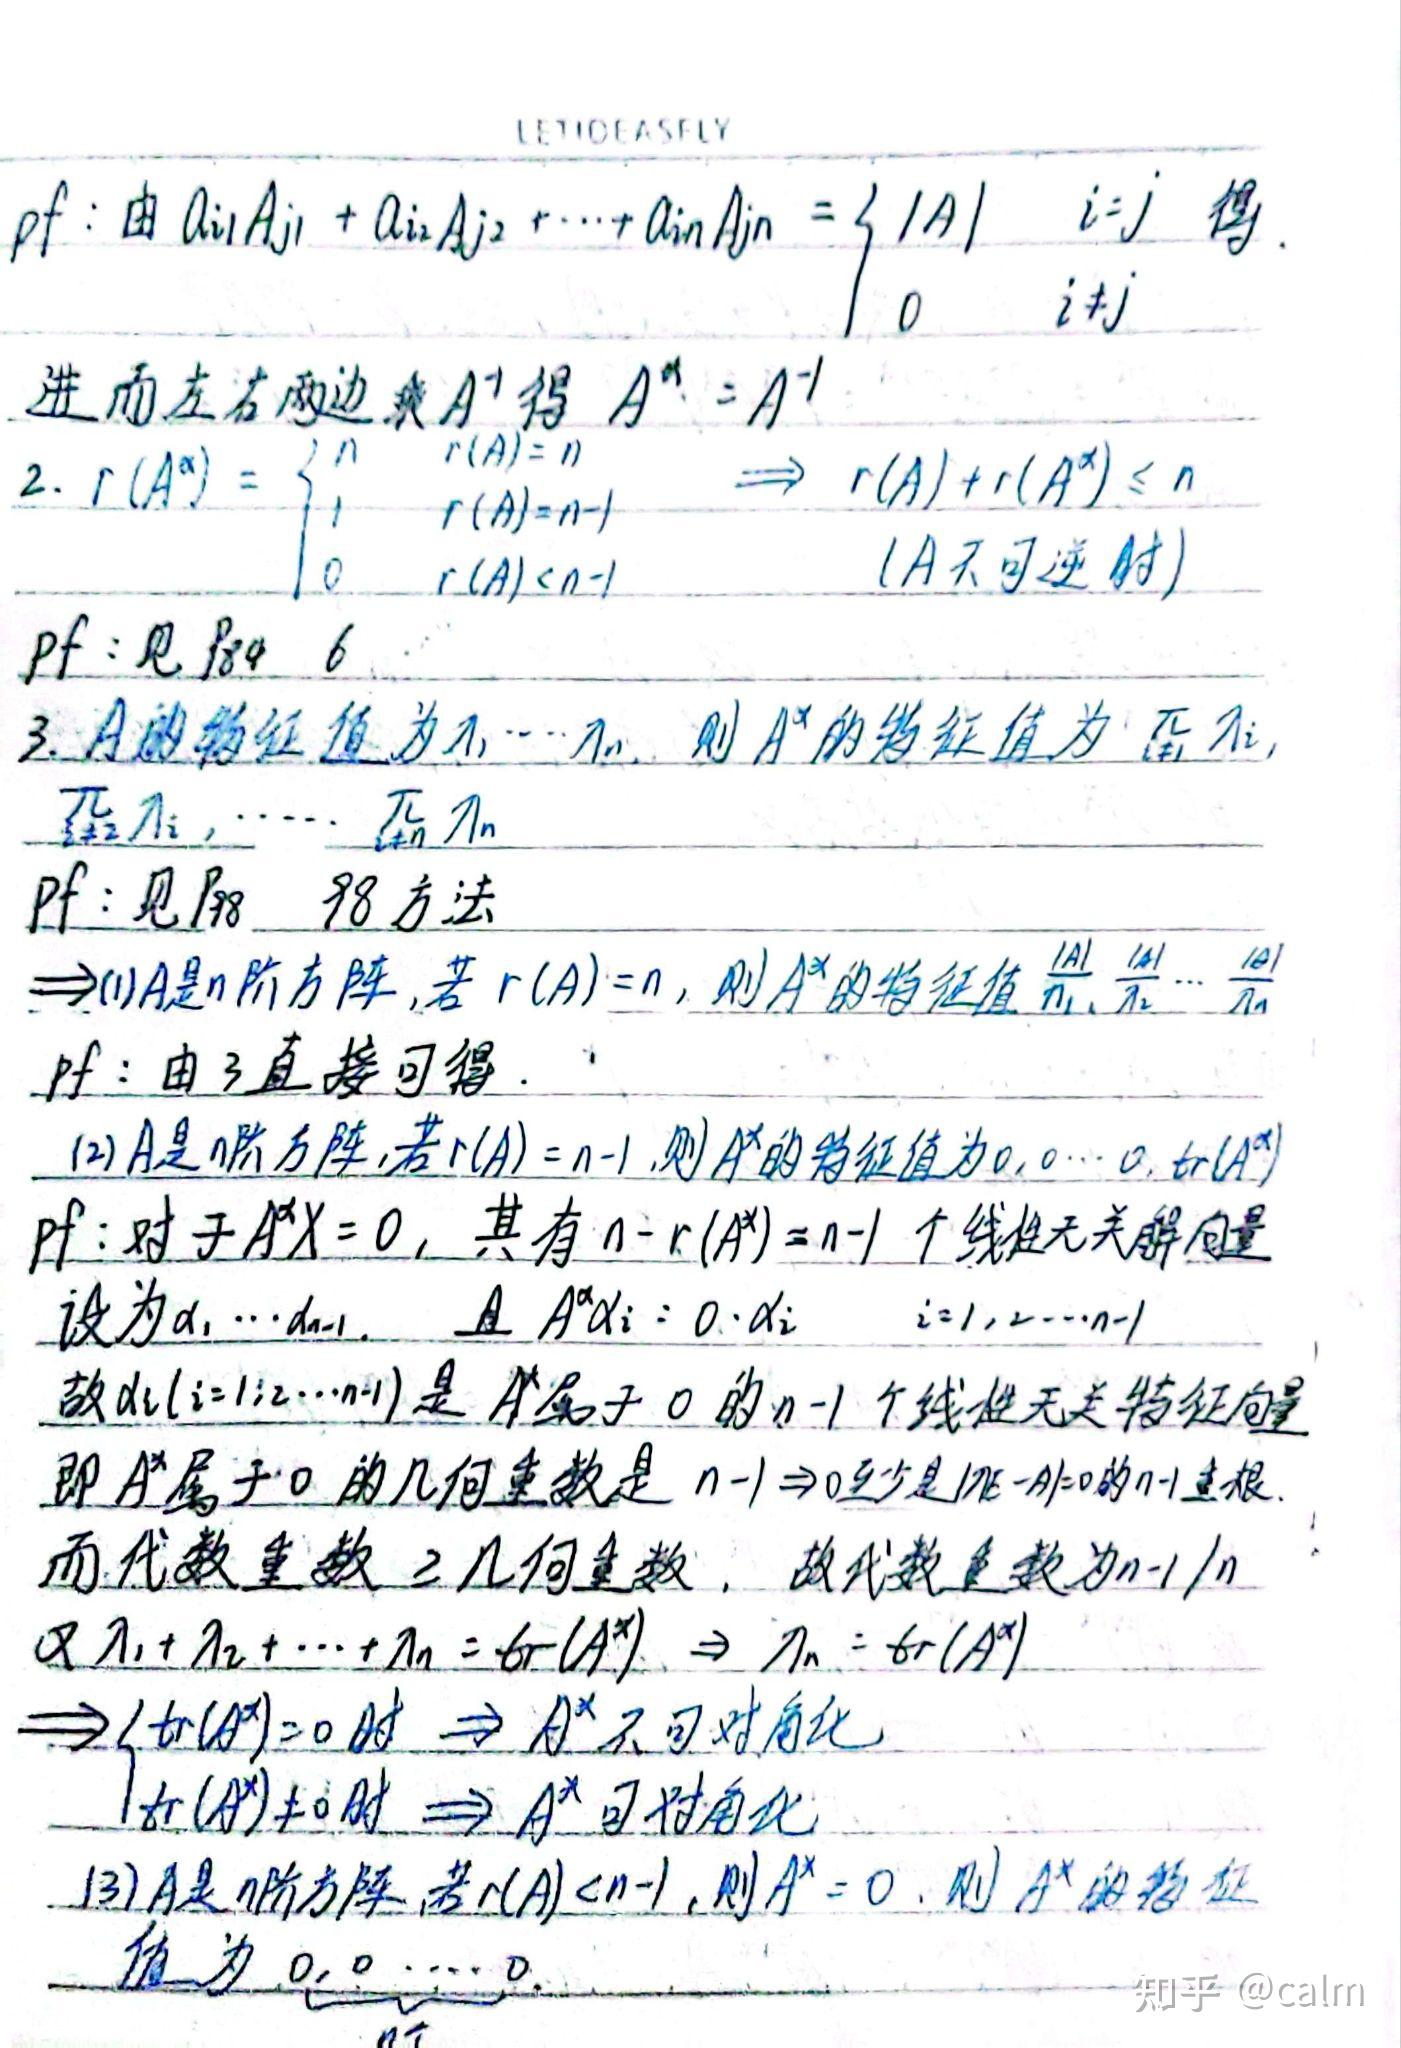 LETIDEASFLY
pf：由 ai1Aj1 + ai2Aj2 + ⋯ + ainAjn = { |A| i=j 得.
0 i≠j
进而左右两边乘A⁻¹得 A* = A⁻¹
2. r(A*) = { n r(A)=n ⇒ r(A)+r(A*)≤n
1 r(A)=n-1
0 r(A)<n-1 (A不可逆时)
pf：见P84 6
3. A的特征值为λ₁⋯λn. 则A*的特征值为 π i≠1 λi,
π i≠2 λi, ⋯⋯ π i≠n λn
pf：见P98 98方法
⇒(1)A是n阶方阵,若 r(A)=n, 则A*的特征值 |A|/λ₁、|A|/λ₂ ⋯ |A|/λn
pf：由3直接可得.
(2)A是n阶方阵,若r(A)=n-1,则A*的特征值为0,0⋯0,tr(A*)
pf：对于A*X=0, 其有 n-r(A*)=n-1 个线性无关解向量
设为α₁⋯αn-1. 且 A*αi=0·αi i=1,2⋯n-1
故αi(i=1,2⋯n-1)是 A*属于0的n-1个线性无关特征向量
即A*属于0的几何重数是 n-1⇒0至少是|λE-A|=0的n-1重根.
而代数重数≥几何重数, 故代数重数为n-1/n
又λ₁+λ₂+⋯+λn=tr(A*) ⇒ λn=tr(A*)
⇒{ tr(A*)=0时 ⇒ A*不可对角化
tr(A*)≠0时 ⇒ A*可对角化
(3)A是n阶方阵,若r(A)<n-1,则A*=0.则 A*的特征
值为 0,0⋯⋯0.
n个
知乎 @calm